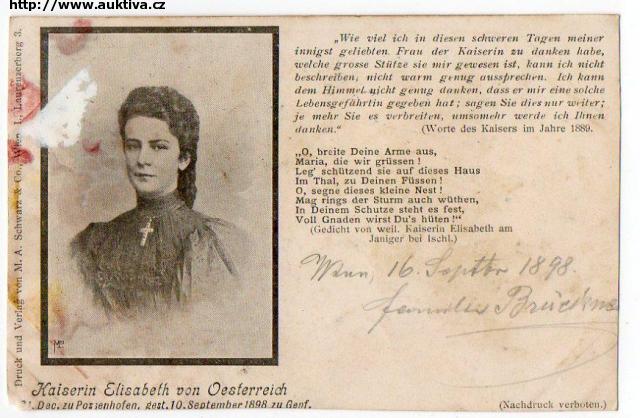 http://www.auktiva.cz
Druck und Verlag von M. A. Schwarz & Co., Wien, I., Laurenzerberg 3.
„Wie viel ich in diesen schweren Tagen meiner
innigst geliebten Frau der Kaiserin zu danken habe,
welche grosse Stütze sie mir gewesen ist, kann ich nicht
beschreiben, nicht warm genug aussprechen. Ich kann
dem Himmel nicht genug danken, dass er mir eine solche
Lebensgefährtin gegeben hat; sagen Sie dies nur weiter;
je mehr Sie es verbreiten, umsomehr werde ich Ihnen
danken.“ (Worte des Kaisers im Jahre 1889.
„O, breite Deine Arme aus,
Maria, die wir grüssen!
Leg' schützend sie auf dieses Haus
Im Thal, zu Deinen Füssen!
O, segne dieses kleine Nest!
Mag rings der Sturm auch wüthen,
In Deinem Schutze steht es fest,
Voll Gnaden wirst Du's hüten!“
(Gedicht von weil. Kaiserin Elisabeth am
Janiger bei Ischl.)
Wien, 16. Septbr 1898.
familie Brückne
Kaiserin Elisabeth von Oesterreich
Dec. zu Possenhofen, gest. 10. September 1898 zu Genf.
(Nachdruck verboten.)